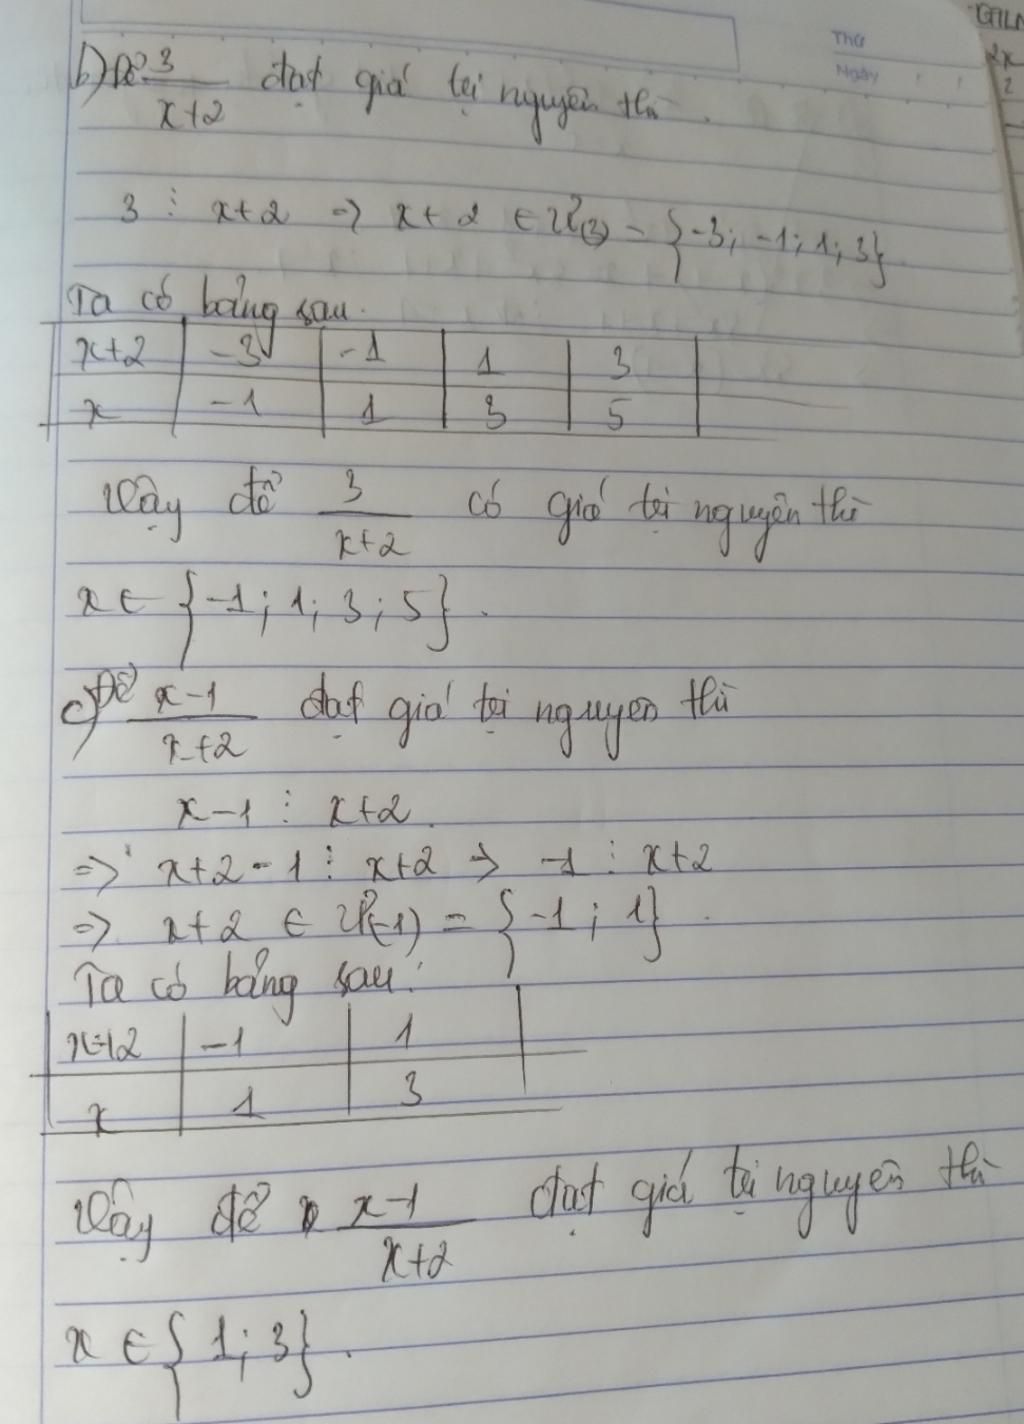 Thứ
Ngày
b) Để 3/(x+2) đạt giá trị nguyên thì
3 ⋮ x+2 => x+2 ∈ Ư(3) = {-3; -1; 1; 3}
Ta có bảng sau.
x+2 | -3 | -1 | 1 | 3
x | -1 | 1 | 3 | 5
Vậy để 3/(x+2) có giá trị nguyên thì
x ∈ {-1; 1; 3; 5}.
c) Để (x-1)/(x+2) đạt giá trị nguyên thì
x-1 ⋮ x+2.
=> x+2-1 ⋮ x+2 => -1 ⋮ x+2
=> x+2 ∈ Ư(-1) = {-1; 1}.
Ta có bảng sau:
x+2 | -1 | 1
x | 1 | 3
Vậy để (x-1)/(x+2) đạt giá trị nguyên thì
x ∈ {1; 3}.